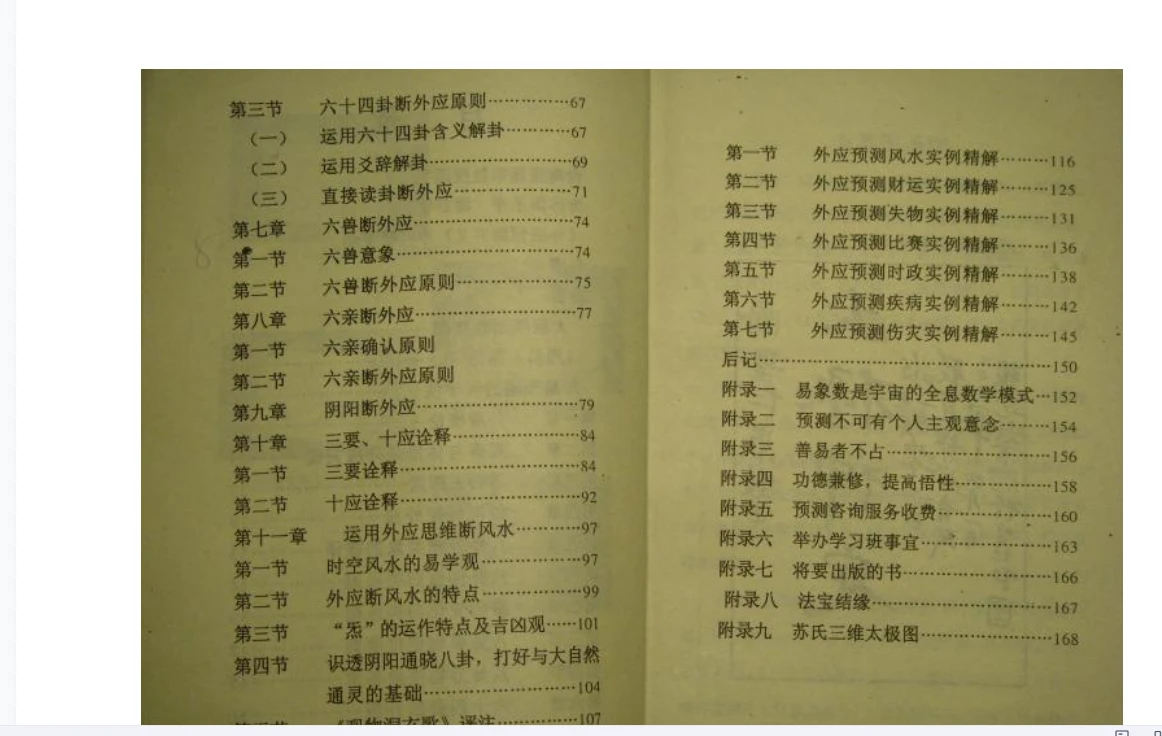 第三节 六十四卦断外应原则……………67
（一） 运用六十四卦含义解卦…………67
（二） 运用爻辞解卦………………………69
（三） 直接读卦断外应…………………71
第七章 六兽断外应…………………………74
第一节 六兽意象……………………………74
第二节 六兽断外应原则…………………75
第八章 六亲断外应…………………………77
第一节 六亲确认原则
第二节 六亲断外应原则
第九章 阴阳断外应…………………………79
第十章 三要、十应诠释……………………84
第一节 三要诠释……………………………84
第二节 十应诠释……………………………92
第十一章 运用外应思维断风水……………97
第一节 时空风水的易学观…………………97
第二节 外应断风水的特点…………………99
第三节 “炁”的运作特点及吉凶观……101
第四节 识透阴阳通晓八卦，打好与大自然
通灵的基础…………………………104
107
第一节 外应预测风水实例精解………116
第二节 外应预测财运实例精解………125
第三节 外应预测失物实例精解………131
第四节 外应预测比赛实例精解………136
第五节 外应预测时政实例精解………138
第六节 外应预测疾病实例精解………142
第七节 外应预测伤灾实例精解………145
后记……………………………………………150
附录一 易象数是宇宙的全息数学模式…152
附录二 预测不可有个人主观意念………154
附录三 善易者不占…………………………156
附录四 功德兼修，提高悟性………………158
附录五 预测咨询服务收费…………………160
附录六 举办学习班事宜……………………163
附录七 将要出版的书………………………166
附录八 法宝结缘……………………………167
附录九 苏氏三维太极图……………………168